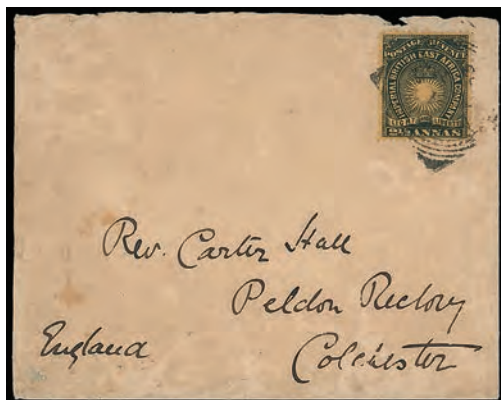 POSTAGE REVENUE
IMPERIAL BRITISH EAST AFRICA COMPANY
LIGHT AND LIBERTY
2½ ANNAS
Rev. Carter Hall
Peldon Rectory
England
Colchester